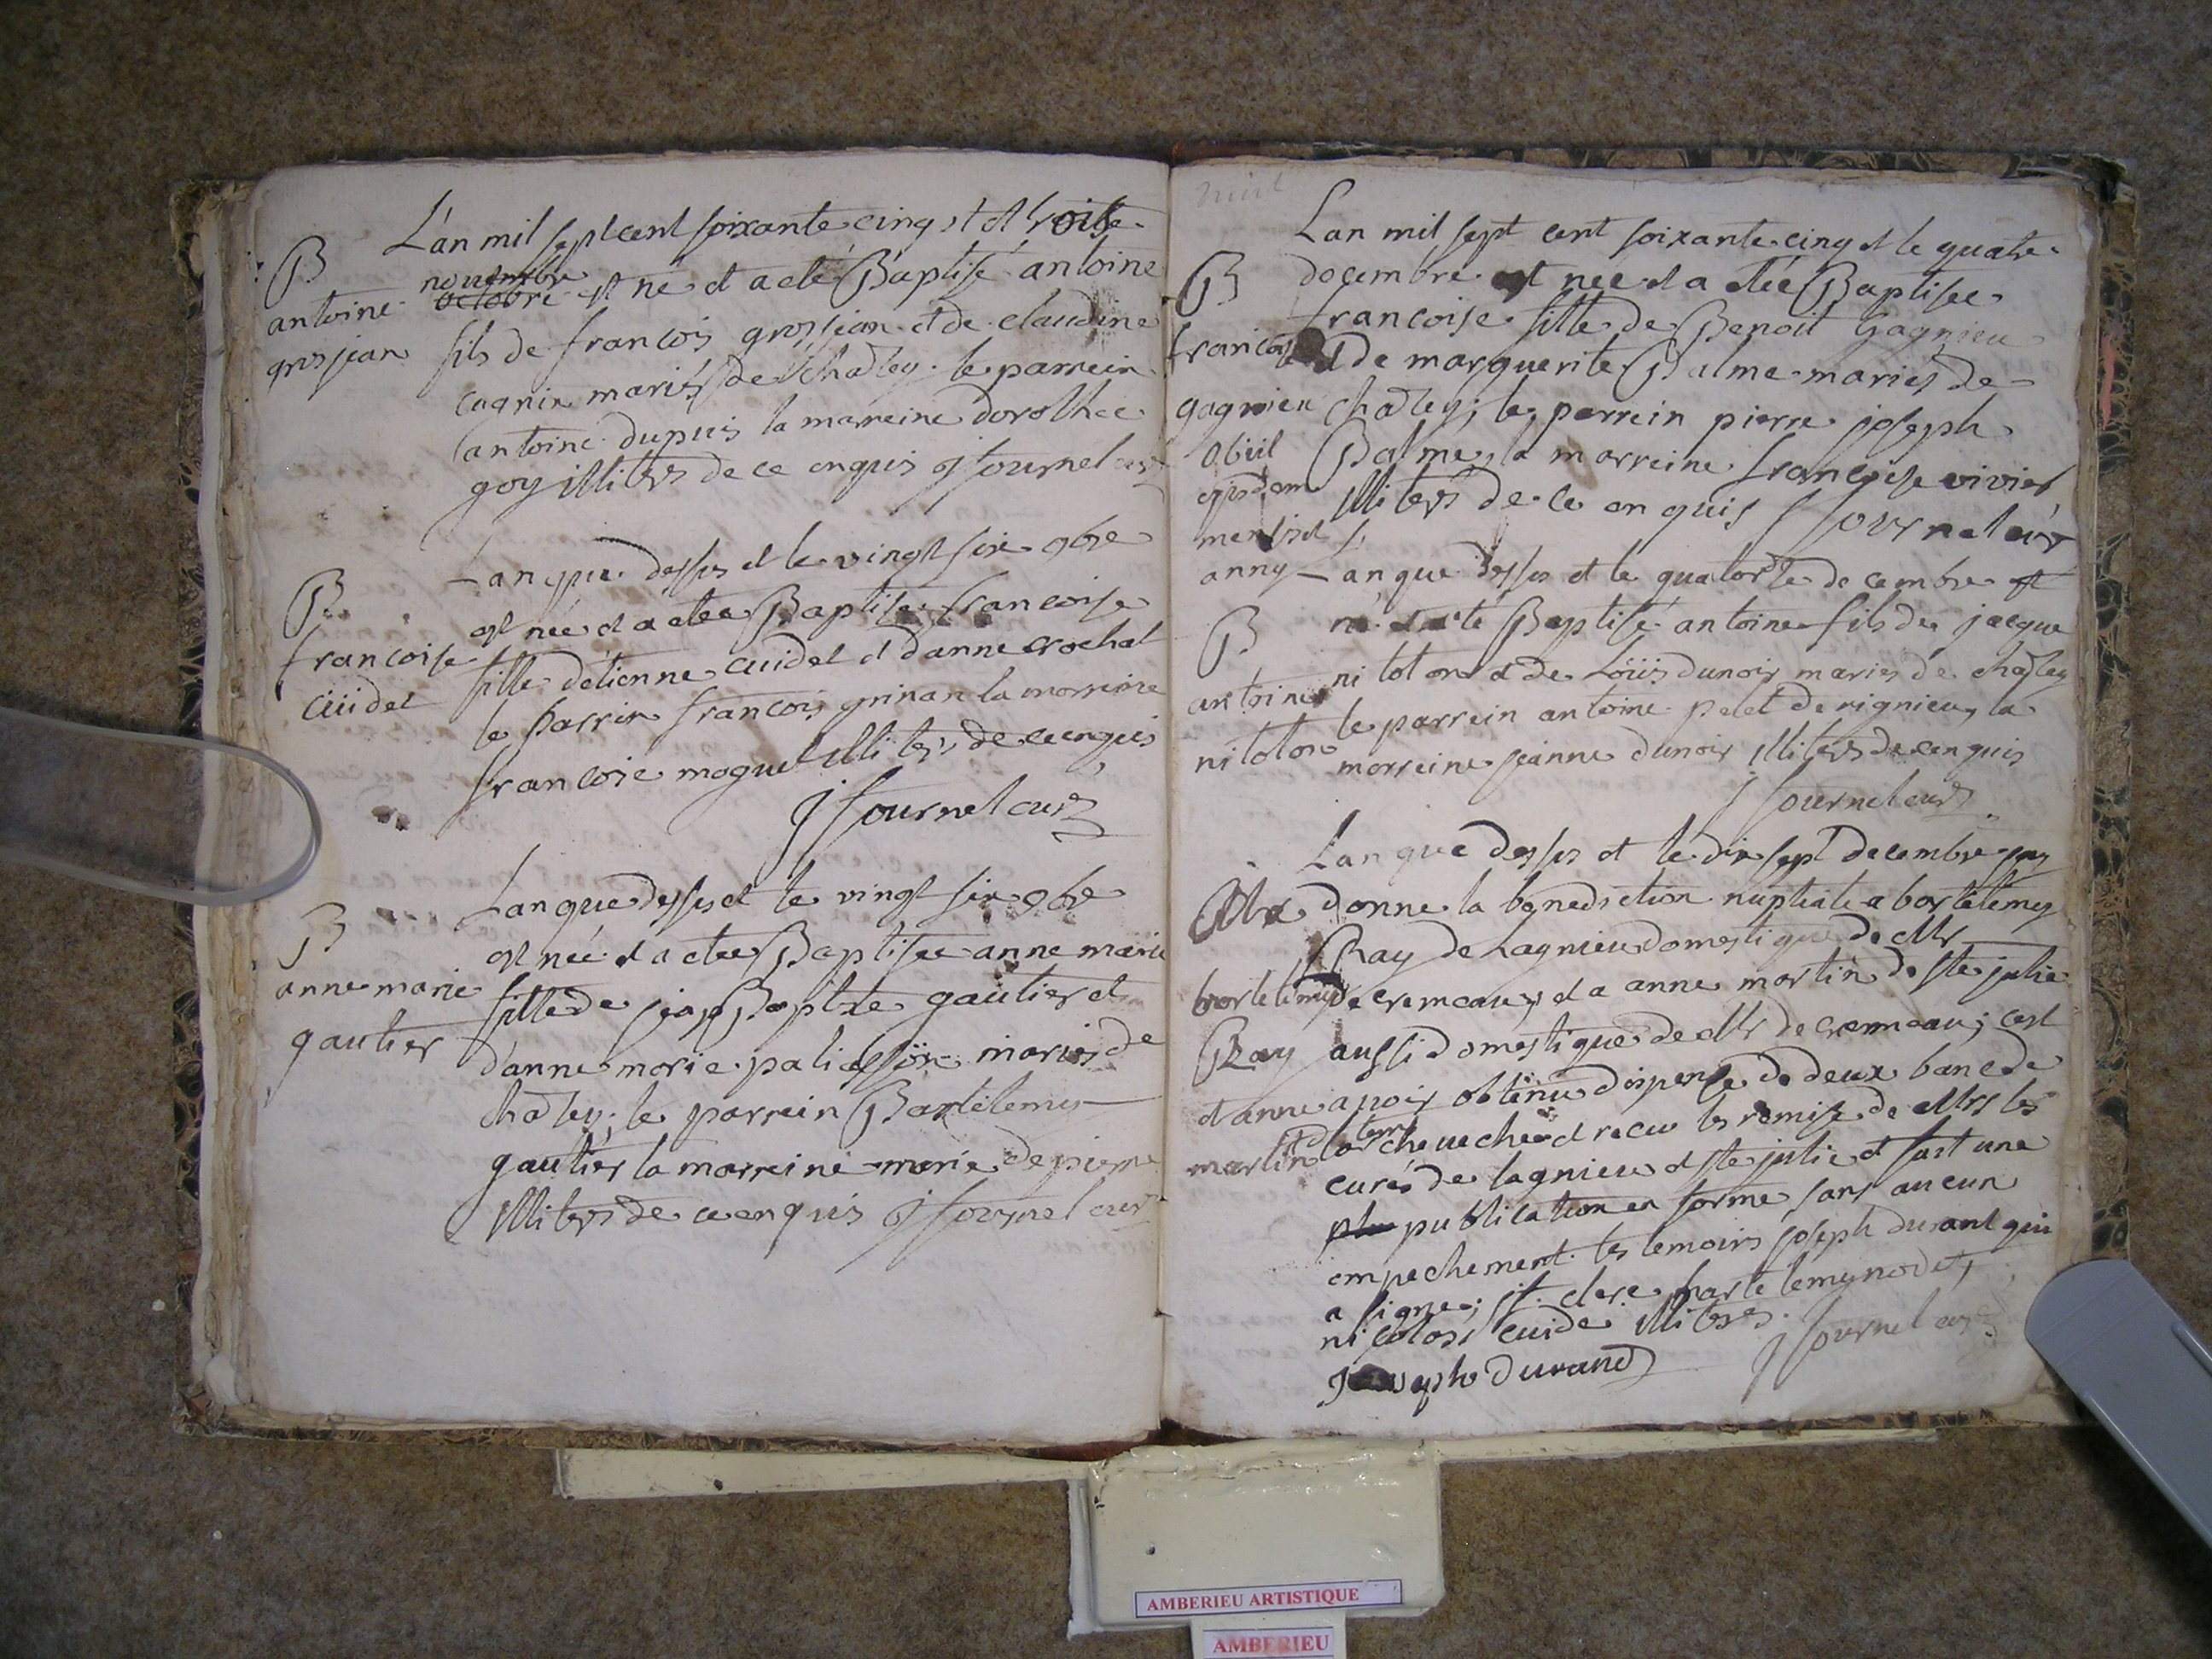 L'an mil sept cent soixante cinq et et trois
B
novembre
antoine octobre est né et a eté Baptisé antoine
grosjean fils de francois grosjean et de claudine
cagnin mariés de chazley. le parrein
antoine dupuis la marreine dorothee
goy illiteres de ce enquis J fournel curé
Lan que dessus et le vingt six 9bre
B est née et a etee Baptisee francoise
francoise fille detienne cuidet et danne crochat
cuidet le parrin francois grinan la marreine
francoise moguet illiteres de ce enquis
J fournel curé
Lan que dessus et le vingt six 9bre
B est née et a etee Baptisee anne marie
anne marie fille de jean Baptiste gautier et
gautier d'anne marie mariés de
chazley; le parrein Bartelemy
gautier la marreine marie depierre
illiteres de ce enquis J fournel curé
Lan mil sept cent soixante cinq et le quatre
B decembre est née et a etée Baptisee
francoise fille de Benoit Gagnieu
francoise et de marguerite Balme mariés de
gagnieu chazley; le parrein pierre joseph
obiit Balme, la marreine francoise vivier
ejusdem illiteres de ce enquis J fournel curé
mensis et
anny Lan que dessus et le quatorze decembre est
B né et a eté Baptisé antoine fils de jacque
antoine nitolon et de Loüis dunoir mariés de chazley
nitolon le parrein antoine pelet de rignieu, la
marreine jeanne dunoir illiteres de ce enquis
J fournel curé
Lan que dessus et le dix sept decembre jay
donne la benediction nuptiale a bortelemy
Ray de Lagnieu domestique de Mr
bortelemy de cremeaux et a anne martin de ste julie
Ray aussi domestique de Mr de cremeaux; cest
et anne avoir obtenu dispense de deux banc de
martin larcheveché et recu les remise de Mrs les
curés de lagnieu et ste julie et fait une
publication en forme sans aucun
empechement. les temoins joseph durant qui
a signe; bartelemy nodet,
nicolas cuide illiteres. J fournel curé
Joseph durand
AMBERIEU ARTISTIQUE
AMBERIEU